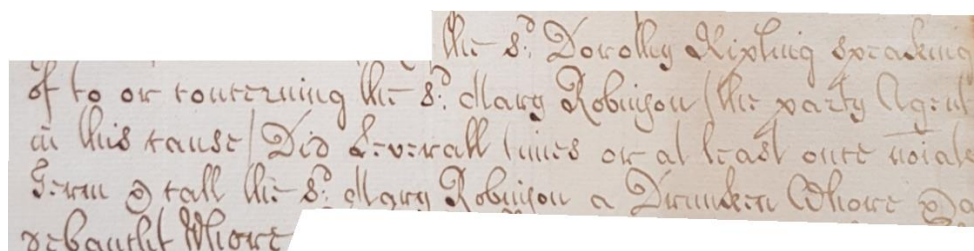 the sd: Dorothy Kipling speaking
of to or concerning the sd: Mary Robinson (the party Agent
in this cause) Did severall times or at least once
Term & call the sd: Mary Robinson a Drunken Whore &
debaucht Whore